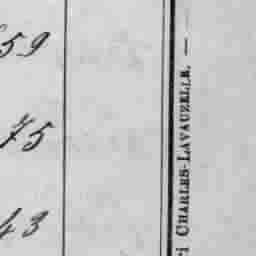 59
75
43
ri CHARLES-LAVAUZELLE. —